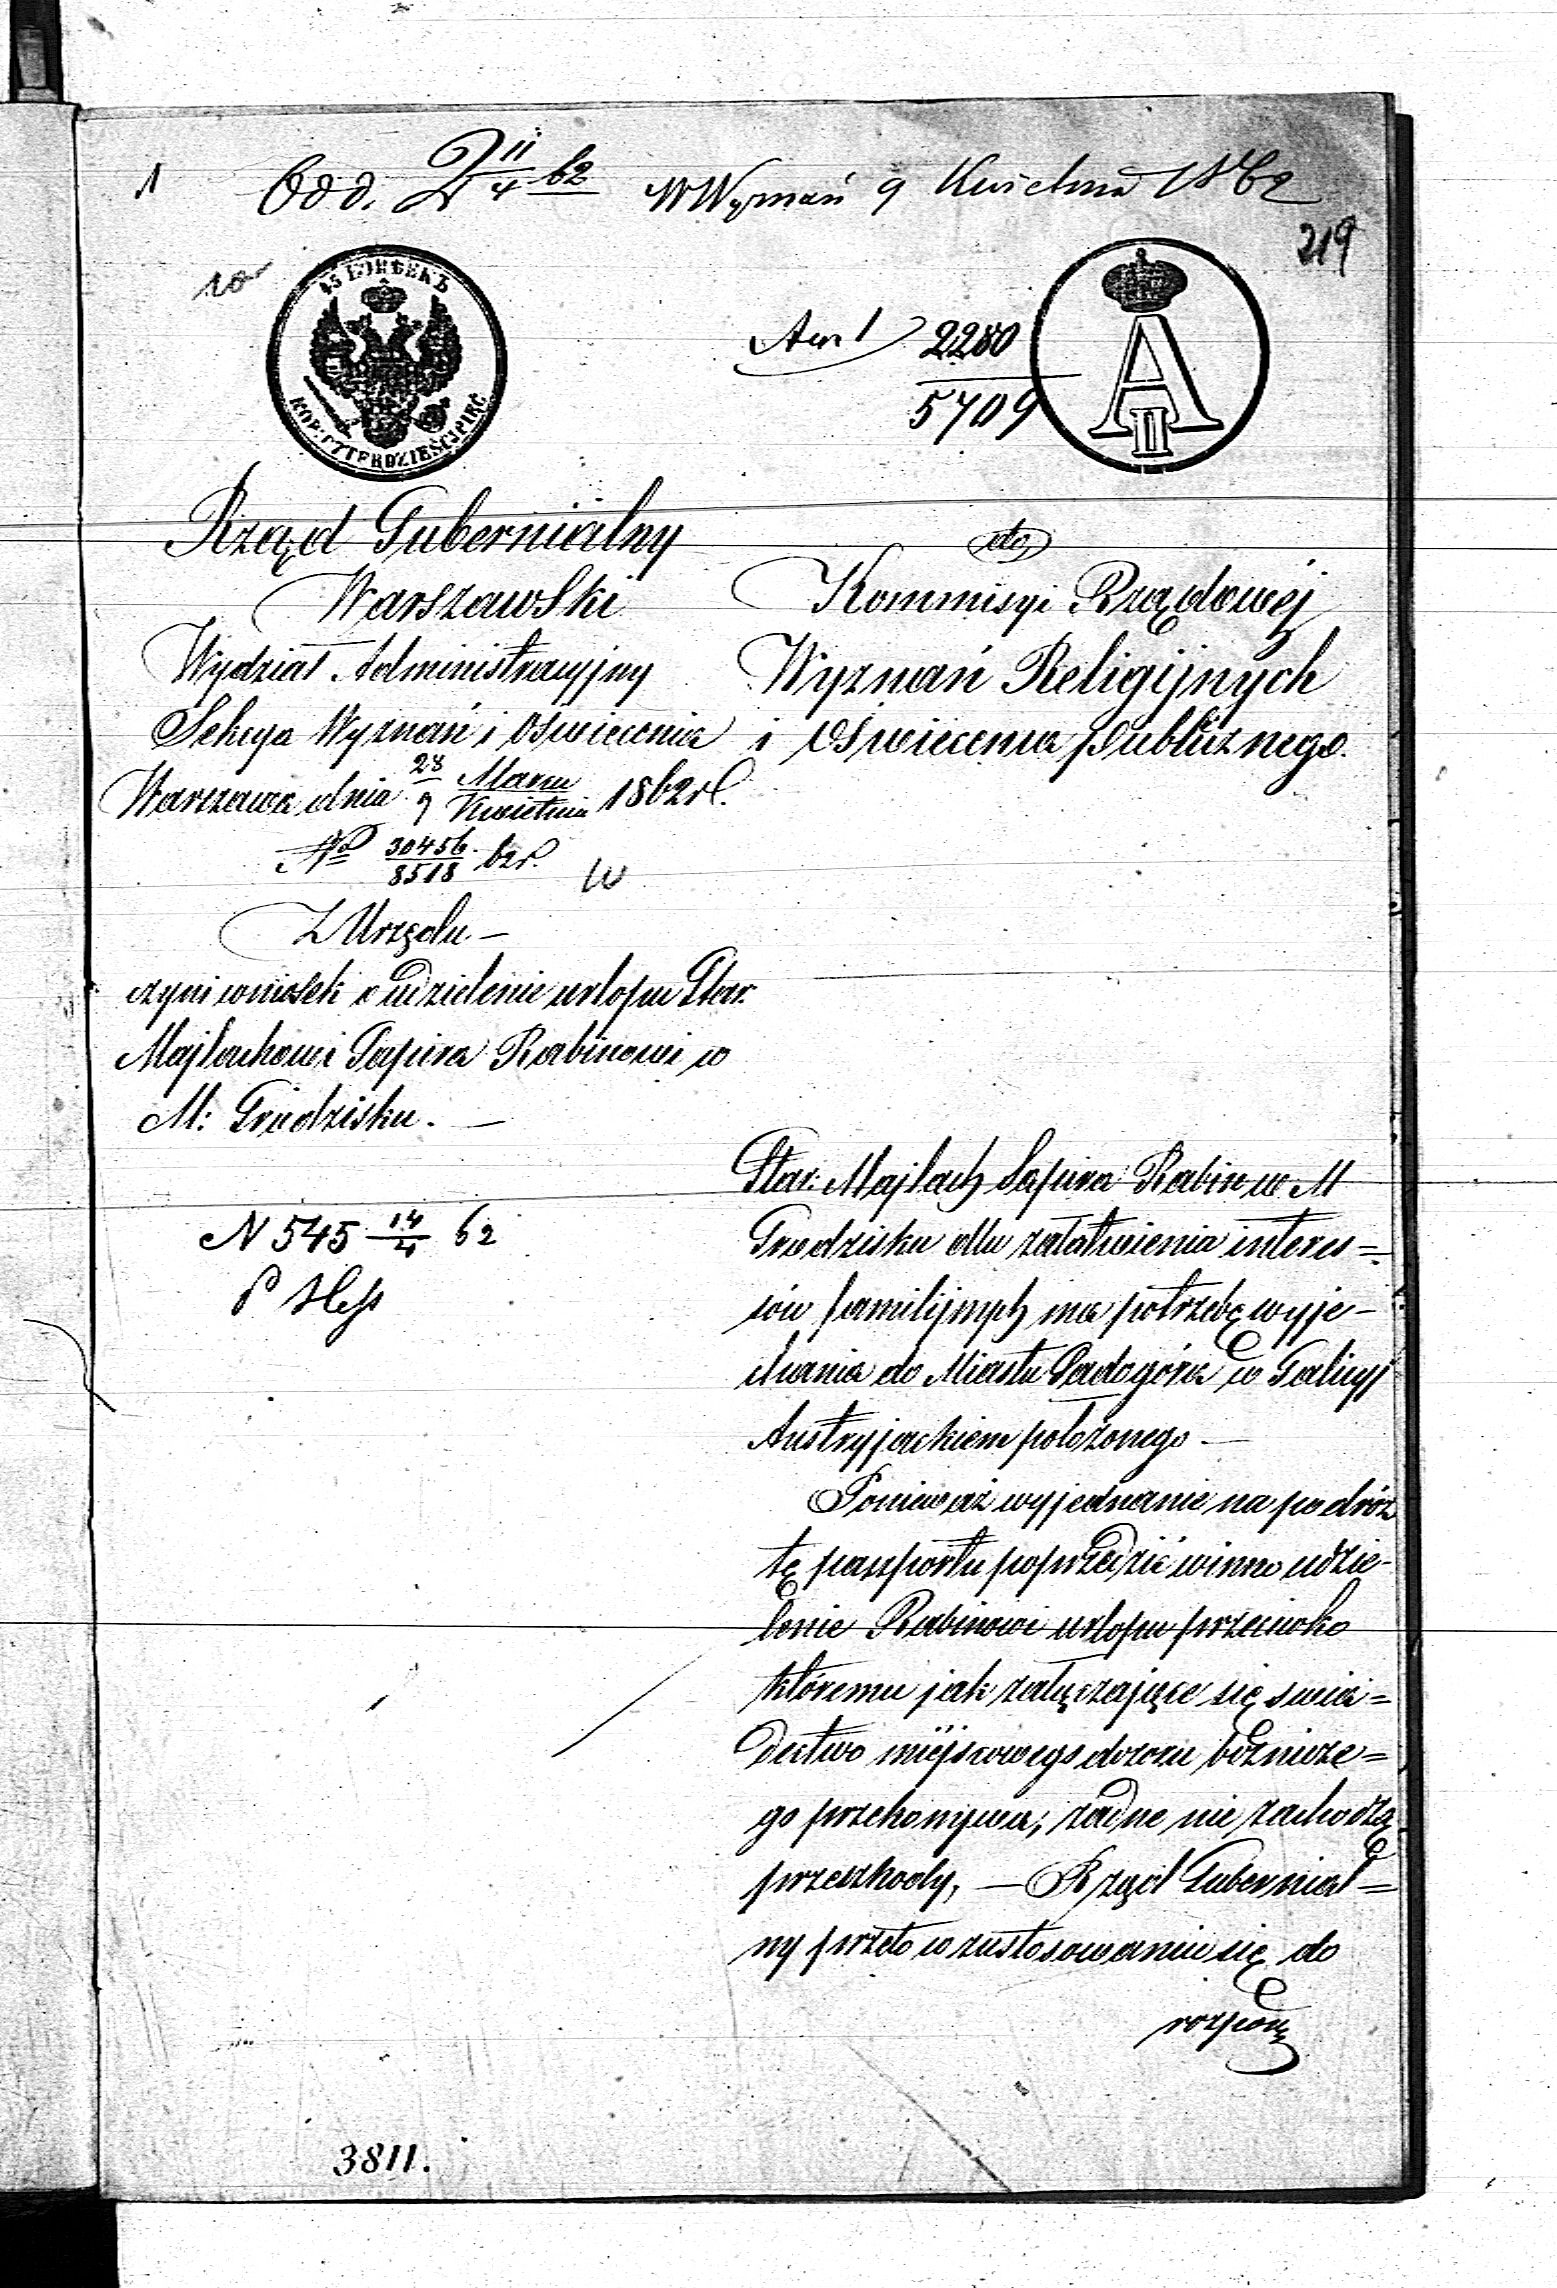 1 Odd. 2 11/4 62 W Wyznań 9 Kwietnia 1862
219
10
45 КОПѢЕКЪ
KOP: CZTERDZIEŚCI PIĘĆ
2280
5709
A II
Rząd Gubernialny
Warszawski
Wydział Administracyjny
Sekcya Wyznań i Oświecenia
Warszawa dnia 28 Marca / 9 Kwietnia 1862 r.
No 30456/8518 62 r.
Z Urzędu —
czyni wniosek o udzielenie urlopu Star.
Majlachowi Sapira Rabinowi w
M: Grodzisku. —
N 545 14/4 62
do
Kommisyi Rządowéj
Wyznań Religijnych
i Oświecenia Publicznego.
Star. Majlach Sapira Rabin w M
Grodzisku dla załatwienia interes=
sów familijnych ma potrzebę wyje-
chania do Miasta Sadogóra w Galicyi
Austryjackiem położonego —
Ponieważ wyjednanie na podróż
tę paszportu poprzedzić winno udzie-
lenie Rabinowi urlopu przeciwko
któremu jak załączające się świa=
dectwo miejscowego dozoru bóżnicze=
go przekonywa, żadne nie zachodzą
przeszkody, — Rząd Gubernial=
ny przeto w zastosowaniu się do
rozporz
3811.